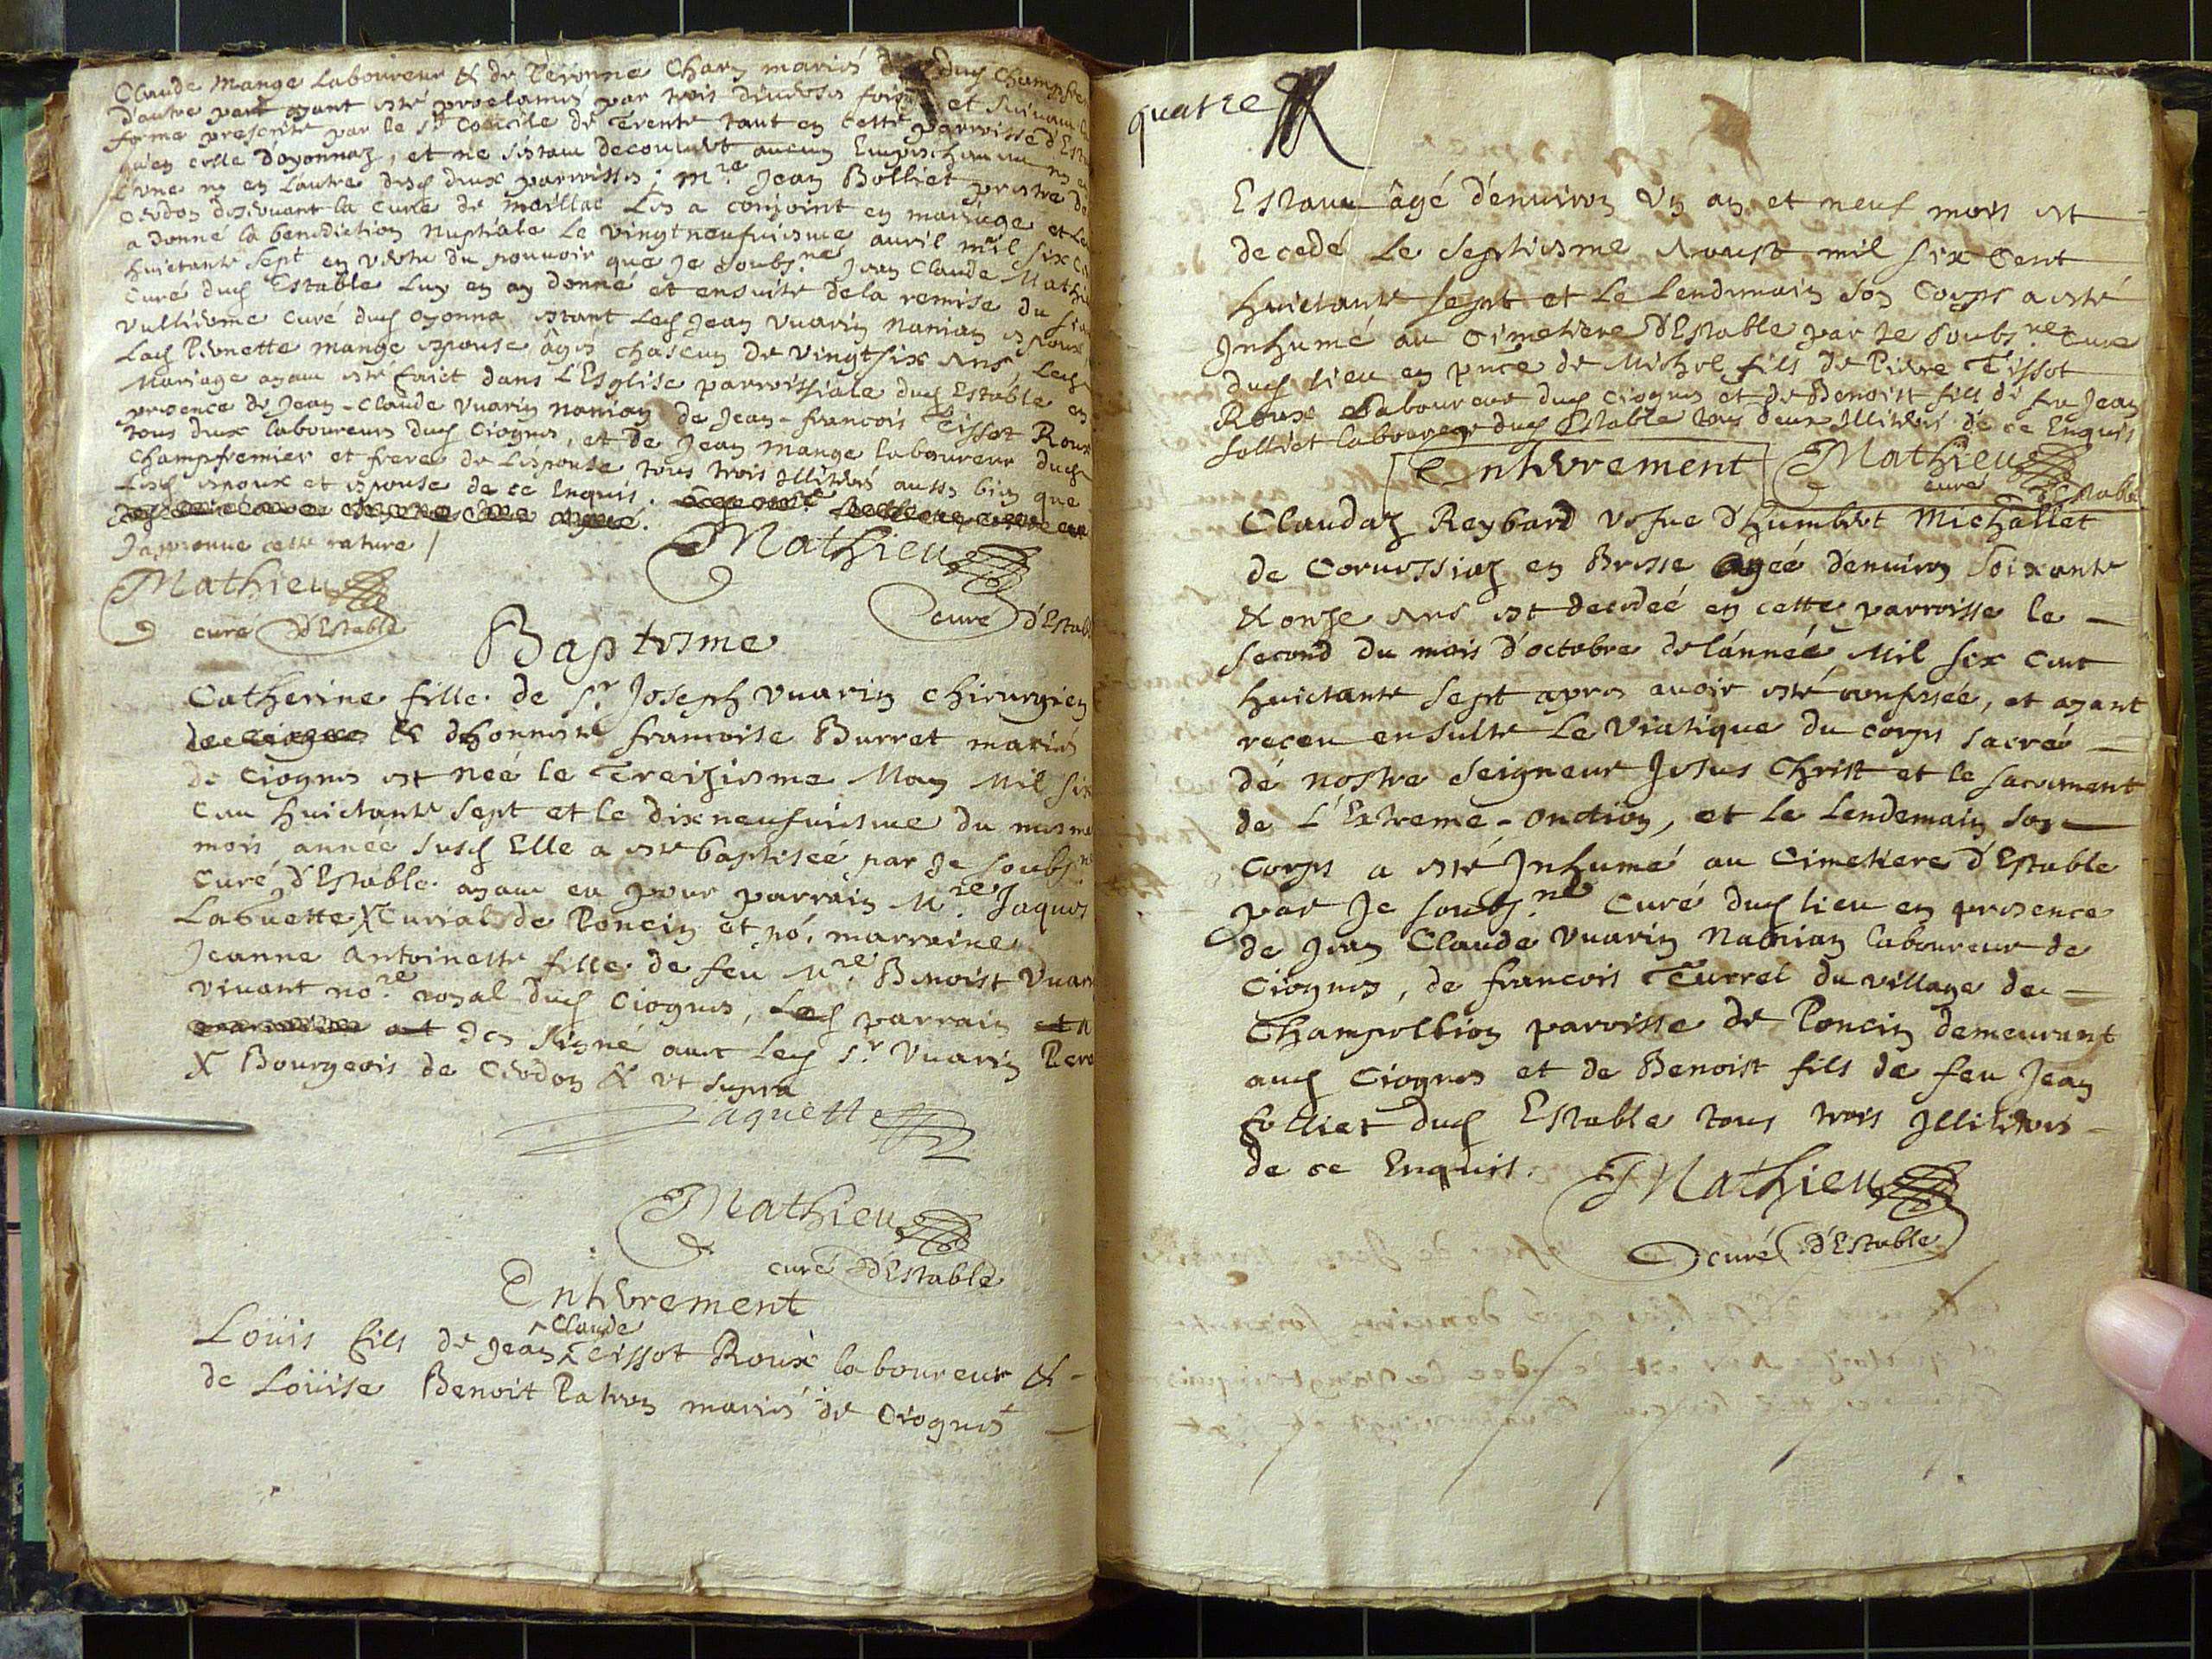 Claude Mange Laboureur & de Péronne Chary mariés duch Champfre
d'autre part ayant esté proclamés par trois diverses fois et suivant
forme prescritte par le Sr Concile de Trente tant en cette parroisse d'Esta
qu'en celle d'oyonnaz, et ne s'estant decouvert aucun Empeschement ny en
L'une ny en L'autre desd deux parroisses; Mre Jean Bolliet prestre de
Cerdon desservant la Cure de Maillac Les a conjoint en mariage et Le
a donné la benediction Nuptiale Le vingtneufviesme avril mil six C
huictante sept en vertu du pouvoir que Je soubs.né Jean Claude Mathi
Curé dud Estable Luy en ay donné et ensuite dela remise du
Vullierme Curé dud oyonna estant Led Jean Vuarin Nanian espoux
Lad Pernette mange espouse âgés chascun de vingtsix Ans, Led
Mariage ayant esté faict dans L'Esglise parroissiale dud Estable en
presence de Jean-Claude Vuarin Nanian de Jean-francois Tissot Roux
tous deux laboureurs dud Ciognes, et de Jean Mange laboureur dud
Champfremier et frere de L'espouse tous trois Illiterés aussy bien que
lesd espoux et espouse de ce Enquis.
J'approuve cette rature /
Mathieu
Mathieu
curé d'Estable
curé d'Establ
Baptesme
Catherine fille de Sr. Joseph Vuarin Chirurgien
& d'honneste francoise Burret mariés
de Ciognes est néé le Treiziesme May Mil six
Cent huictante sept et le dixneufviesme du mesme
mois année susd Elle a esté baptiséé par Je soubs.né
Curé d'Estable ayant eu pour parrain Mre. Jaques
Laguette X Curial de Poncin et po. marraine
Jeanne Antoinette fille de feu Mre. Benoist Vuar
vivant no.re royal dud Ciognes, Led parrain et
Ies signé avec Led Sr Vuarin Pere
X Bourgeois de Cerdon & vt supra
Laguette
Mathieu
curé d'Estable
Enterrement
Claude
Loüis fils de Jean ^ Tissot Roux laboureur &
de Loüise Benoit Patron mariés de Ciognes
quatre
Estant âgé d'environ Vn an et neuf mois est
decedé Le Septiesme Aoust mil six Cent
huictante sept et Le Lendemain son Corps a esté
Inhumé au Cimetiere d'Estable par Je soubs.né Curé
dud lieu en pnce de Michel fils de Pierre Tissot
Roux Laboureur dud Ciognes et de Benoist fils de feu Jean
folliet laboureur dud Estable tous deux Illiterés de ce Enquis
Enterrement
Mathieu
curé d'Estable
Claudaz Reybard vefve d'humbert Michallet
de Corvessiaz en Bresse agéé d'environ soixante
& onze Ans est decedéé en cette parroisse le
second du mois d'octobre de l'annéé Mil six Cent
huictante sept apres avoir esté confesséé, et ayant
receu ensuitte Le Viatique du corps sacré
dé nostre Seigneur Jesus Christ et le sacrement
de L'Extreme-Onction, et Le Lendemain son
Corps a esté Inhumé au Cimetiere d'Estable
par Je soubs.né Curé dud lieu en presence
de Jean Claude Vuarin Nanian laboureur de
Ciognes, de francois Turrel du village de
Champollion paroisse de Poncin demeurant
aud Ciognes et de Benoist fils de feu Jean
folliet dud Estable tous trois Illiterés
de ce Enquis.
Mathieu
curé d'Estable